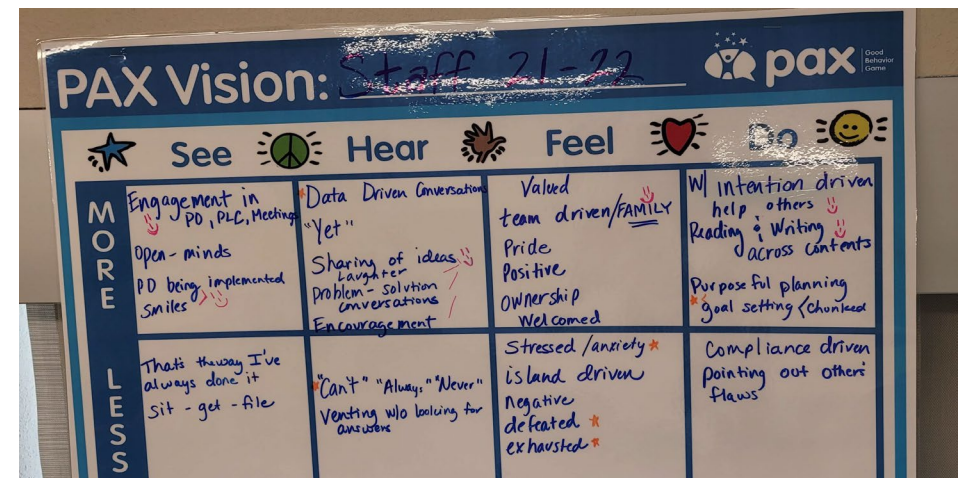 PAX Vision: Staff 21-22
pax Good Behavior Game
See Hear Feel Do
MORE
Engagement in
PD, PLC, Meetings
Open-minds
PD being implemented
Smiles
Data Driven Conversations
"Yet"
Sharing of ideas
Laughter
Problem-solution
conversations
Encouragement
Valued
team driven/FAMILY
Pride
Positive
Ownership
Welcomed
W/ intention driven
help others
Reading & Writing
across contents
Purposeful planning
goal setting/Chunked
LESS
Thats the way I've
always done it
Sit-get-file
"Can't" "Always" "Never"
Venting w/o looking for
answers
Stressed/anxiety
island driven
negative
defeated
exhausted
Compliance driven
pointing out others
flaws